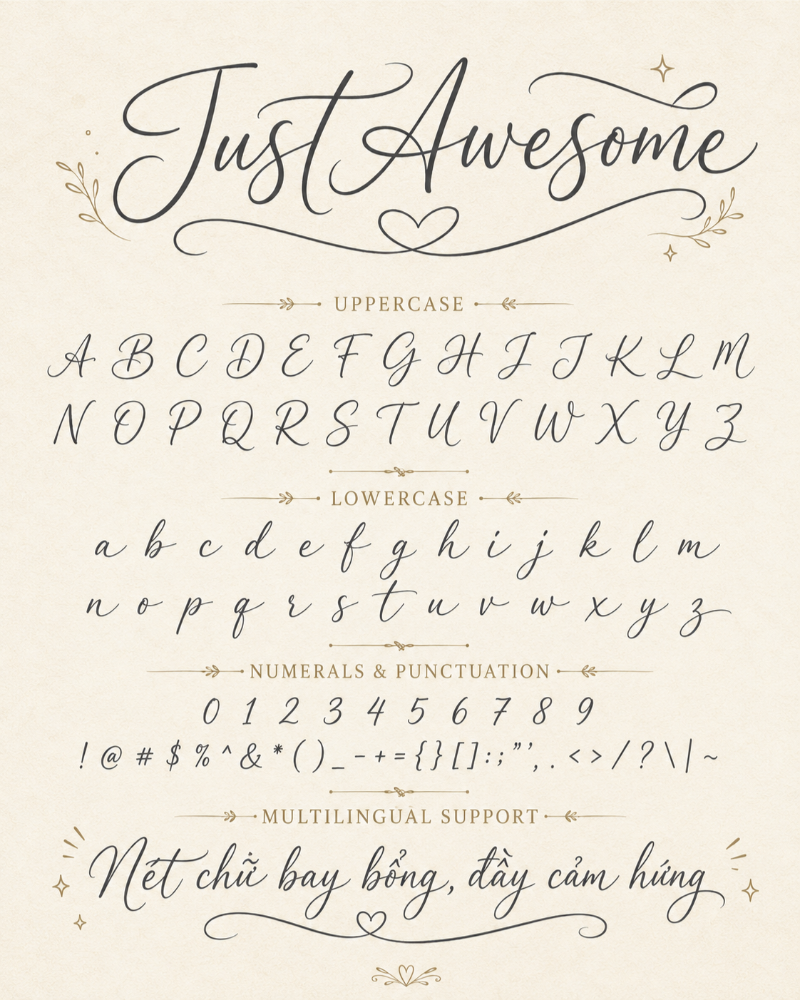 Just Awesome
UPPERCASE
A B C D E F G H I J K L M
N O P Q R S T U V W X Y Z
LOWERCASE
a b c d e f g h i j k l m
n o p q r s t u v w x y z
NUMERALS & PUNCTUATION
0 1 2 3 4 5 6 7 8 9
! @ # $ % ^ & * ( ) _ - + = { } [ ] : ; ” ’ , . < > / ? \ | ~
MULTILINGUAL SUPPORT
Nét chữ bay bổng, đầy cảm hứng